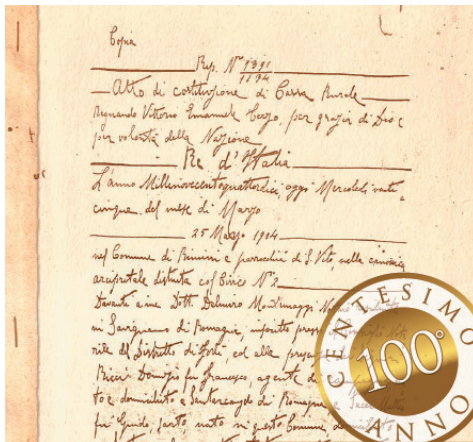 Copia
Rep. N° 1391
1194
Atto di costituzione di Cassa Rurale
Regnando Vittorio Emanuele Terzo, per grazia di Dio e
per volontà della Nazione
Re d'Italia
L'anno Millenovecentoquattordici, oggi Mercoledì venti=
cinque del mese di Marzo
25 Marzo 1914
nel Comune di Rimini e parrocchia di S. Vito, nella canonica
arcipretale distinta col Civico N° 2
Davanti a me Dott. Delmiro
in Savignano di Romagna, inscritto presso
rile del Distretto di Forlì, ed alla
Ricci Domenico fu Francesco, agente
to e domiciliato a Santarcangelo di Romagna, e Sacchi
fu Guido, sarto nato in questo Comune
CENTESIMO
100°
ANNO